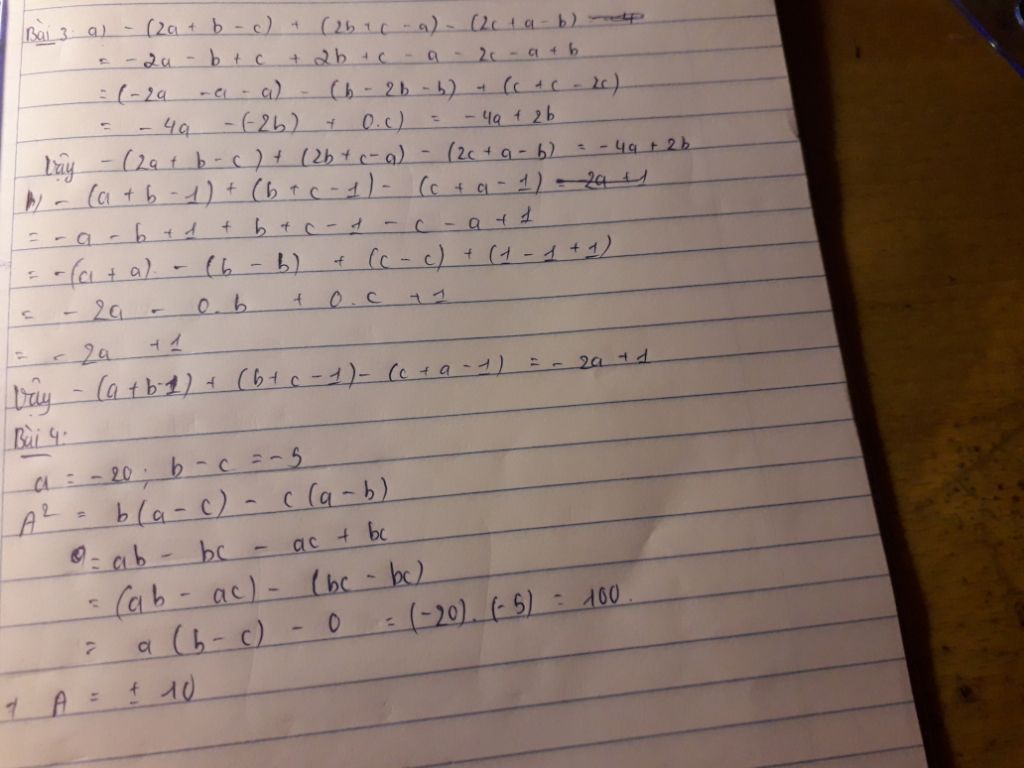 Bài 3: a) - (2a + b - c) + (2b + c - a) - (2c + a - b)
= -2a - b + c + 2b + c - a - 2c - a + b
= (-2a - a - a) - (b - 2b - b) + (c + c - 2c)
= -4a - (-2b) + 0.c) = -4a + 2b
Vậy -(2a + b - c) + (2b + c - a) - (2c + a - b) = -4a + 2b
b) - (a + b - 1) + (b + c - 1) - (c + a - 1) = 2a + 1
= -a - b + 1 + b + c - 1 - c - a + 1
= -(a + a) - (b - b) + (c - c) + (1 - 1 + 1)
= - 2a - 0.b + 0.c + 1
= - 2a + 1
Vậy -(a + b - 1) + (b + c - 1) - (c + a - 1) = - 2a + 1
Bài 4:
a = -20; b - c = -5
A² = b(a - c) - c(a - b)
= ab - bc - ac + bc
= (ab - ac) - (bc - bc)
= a(b - c) - 0 = (-20).(-5) = 100.
A = ± 10